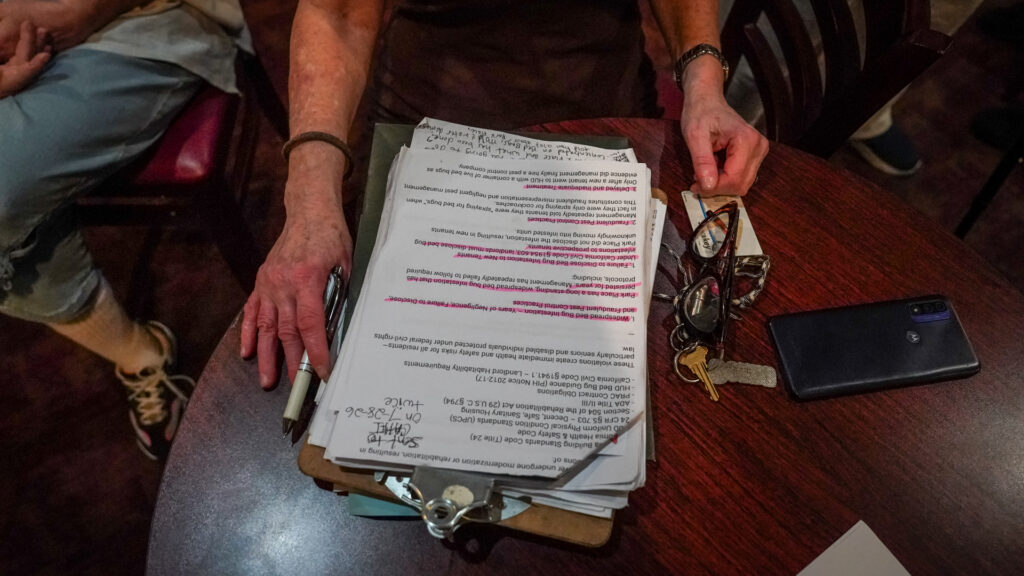 ever undergone modernization or rehabilitation, resulting in
ons of:
Building Standards Code (Title 24)
Health & Safety Code
Uniform Physical Condition Standards (UPCS)
24 CFR §5.703 – Decent, Safe, Sanitary Housing
Section 504 of the Rehabilitation Act (29 U.S.C. §794)
ADA Title II/III
- PRAC Contract Obligations
- HUD Bed Bug Guidance (PIH Notice 2012-17)
- California Civil Code §1941.1 – Landlord Habitability Requirements
Sent to
On 7-28-26
twice
These violations create immediate health and safety risks for all residents—
particularly seniors and disabled individuals protected under federal civil rights
law.
I. Widespread Bed Bug Infestation – Years of Negligence, Failure to Disclose,
and Fraudulent Pest Control Practices
Park Place has a long-standing, widespread bed bug infestation that has
persisted for years. Management has repeatedly failed to follow required
protocols, including:
1. Failure to Disclose Bed Bug Infestation to New Tenants
Under California Civil Code §1954.603, landlords must disclose bed bug
infestations to prospective tenants.
Park Place did not disclose the infestation, resulting in new tenants
unknowingly moving into infested units.
2. Fraudulent Pest Control Practices
Management repeatedly told tenants they were "spraying for bed bugs," when
in fact they were only spraying for cockroaches.
This constitutes fraudulent misrepresentation and negligent pest management.
3. Delayed and Inadequate Treatment
Only after a new tenant went to HUD with a container of live bed bugs as
evidence did management finally hire a pest control company.
you going to do?
and what has been done?